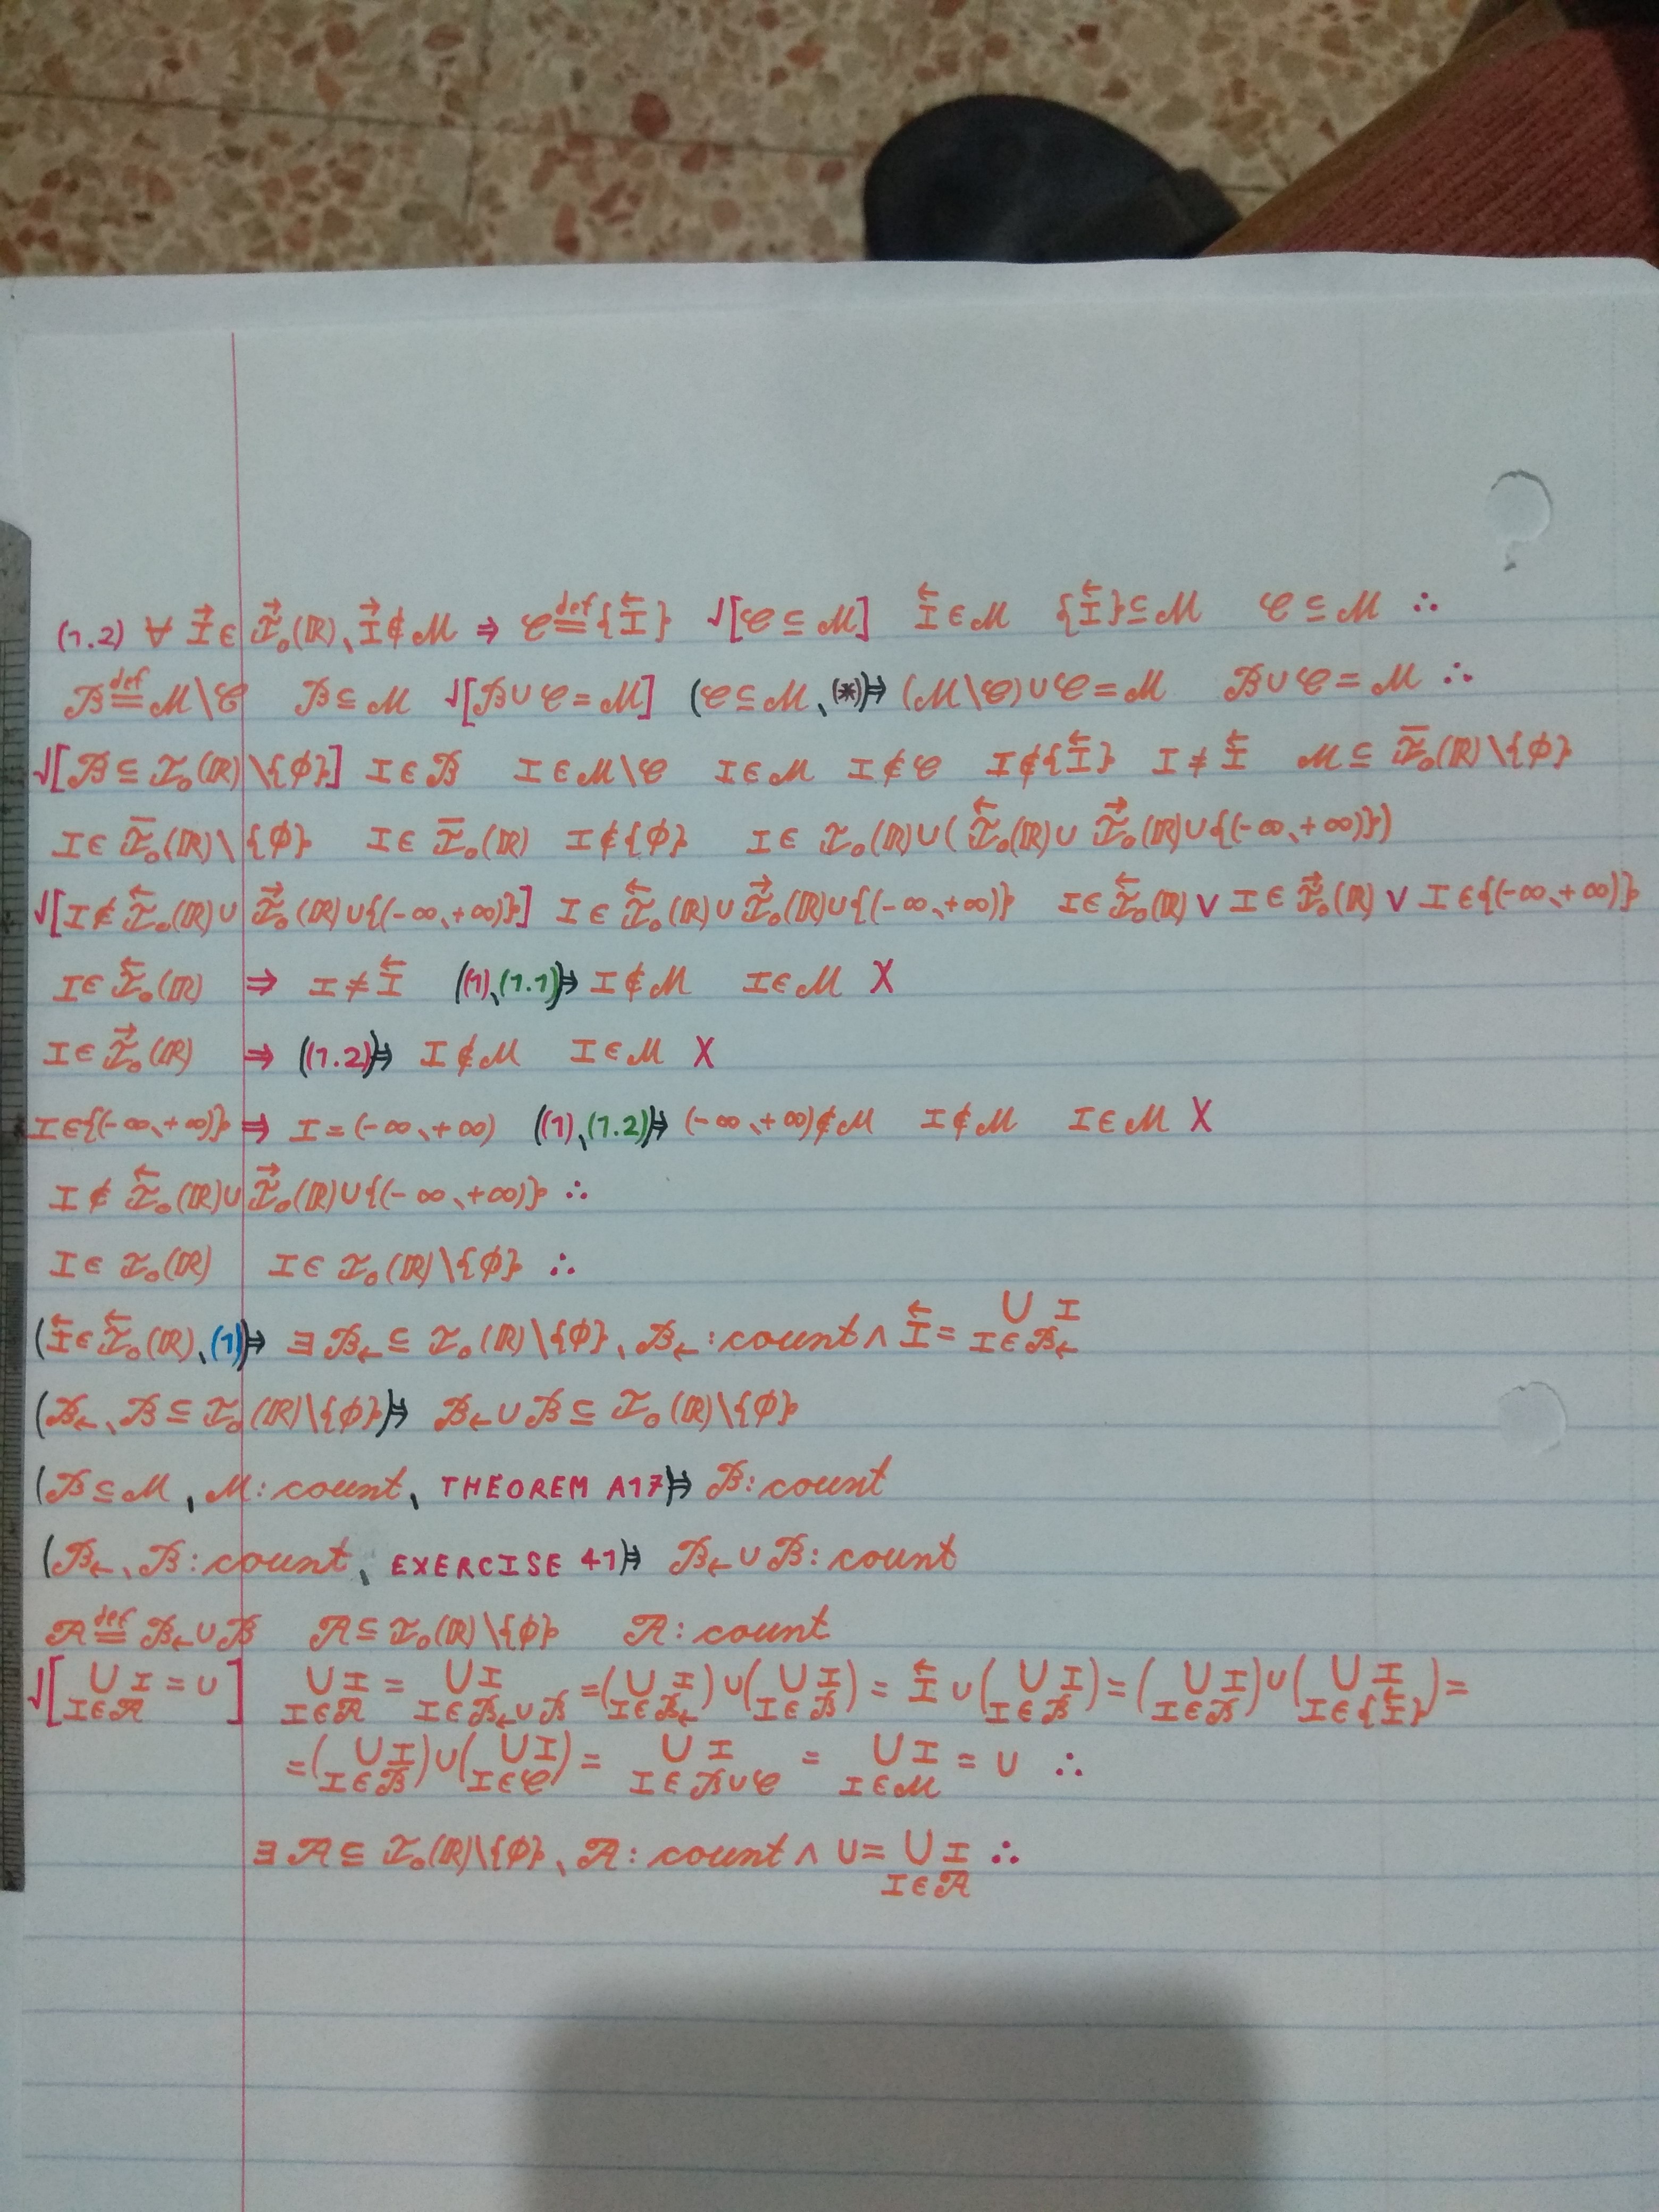 (1.2) ∀ I⃗ ∈ 𝓘⃗₀(ℝ), I⃗ ∉ 𝓜 ⇒ 𝓒 ≝ {I⃖} √[𝓒 ⊆ 𝓜] I⃖ ∈ 𝓜 {I⃖} ⊆ 𝓜 𝓒 ⊆ 𝓜 ∴
𝓑 ≝ 𝓜\𝓒 𝓑 ⊆ 𝓜 √[𝓑 ∪ 𝓒 = 𝓜] (𝓒 ⊆ 𝓜, (*)) ⇒ (𝓜\𝓒) ∪ 𝓒 = 𝓜 𝓑 ∪ 𝓒 = 𝓜 ∴
√[𝓑 ⊆ 𝓘₀(ℝ)\{∅}] I ∈ 𝓑 I ∈ 𝓜\𝓒 I ∈ 𝓜 I ∉ 𝓒 I ∉ {I⃖} I ≠ I⃖ 𝓜 ⊆ 𝓘̅₀(ℝ)\{∅}
I ∈ 𝓘̅₀(ℝ)\{∅} I ∈ 𝓘̅₀(ℝ) I ∉ {∅} I ∈ 𝓘₀(ℝ) ∪ (𝓘⃖₀(ℝ) ∪ 𝓘⃗₀(ℝ) ∪ {(-∞, +∞)})
√[I ∉ 𝓘⃖₀(ℝ) ∪ 𝓘⃗₀(ℝ) ∪ {(-∞, +∞)}] I ∈ 𝓘⃖₀(ℝ) ∪ 𝓘⃗₀(ℝ) ∪ {(-∞, +∞)} I ∈ 𝓘⃖₀(ℝ) ∨ I ∈ 𝓘⃗₀(ℝ) ∨ I ∈ {(-∞, +∞)}
I ∈ 𝓘⃖₀(ℝ) ⇒ I ≠ I⃖ ((1), (1.1)) ⇒ I ∉ 𝓜 I ∈ 𝓜 X
I ∈ 𝓘⃗₀(ℝ) ⇒ ((1.2)) ⇒ I ∉ 𝓜 I ∈ 𝓜 X
I ∈ {(-∞, +∞)} ⇒ I = (-∞, +∞) ((1), (1.2)) ⇒ (-∞, +∞) ∉ 𝓜 I ∉ 𝓜 I ∈ 𝓜 X
I ∉ 𝓘⃖₀(ℝ) ∪ 𝓘⃗₀(ℝ) ∪ {(-∞, +∞)} ∴
I ∈ 𝓘₀(ℝ) I ∈ 𝓘₀(ℝ)\{∅} ∴
(I⃖ ∈ 𝓘⃖₀(ℝ), (1)) ⇒ ∃ 𝓑← ⊆ 𝓘₀(ℝ)\{∅}, 𝓑← : count ∧ I⃖ = ∪_{I ∈ 𝓑←} I
(𝓑←, 𝓑 ⊆ 𝓘₀(ℝ)\{∅}) ⇒ 𝓑← ∪ 𝓑 ⊆ 𝓘₀(ℝ)\{∅}
(𝓑 ⊆ 𝓜, 𝓜 : count, THEOREM A17) ⇒ 𝓑 : count
(𝓑←, 𝓑 : count, EXERCISE 41) ⇒ 𝓑← ∪ 𝓑 : count
𝓐 ≝ 𝓑← ∪ 𝓑 𝓐 ⊆ 𝓘₀(ℝ)\{∅} 𝓐 : count
√[∪_{I ∈ 𝓐} I = U] ∪_{I ∈ 𝓐} I = ∪_{I ∈ 𝓑← ∪ 𝓑} I = (∪_{I ∈ 𝓑←} I) ∪ (∪_{I ∈ 𝓑} I) = I⃖ ∪ (∪_{I ∈ 𝓑} I) = (∪_{I ∈ 𝓑} I) ∪ (∪_{I ∈ {I⃖}} I) =
= (∪_{I ∈ 𝓑} I) ∪ (∪_{I ∈ 𝓒} I) = ∪_{I ∈ 𝓑 ∪ 𝓒} I = ∪_{I ∈ 𝓜} I = U ∴
∃ 𝓐 ⊆ 𝓘₀(ℝ)\{∅}, 𝓐 : count ∧ U = ∪_{I ∈ 𝓐} I ∴